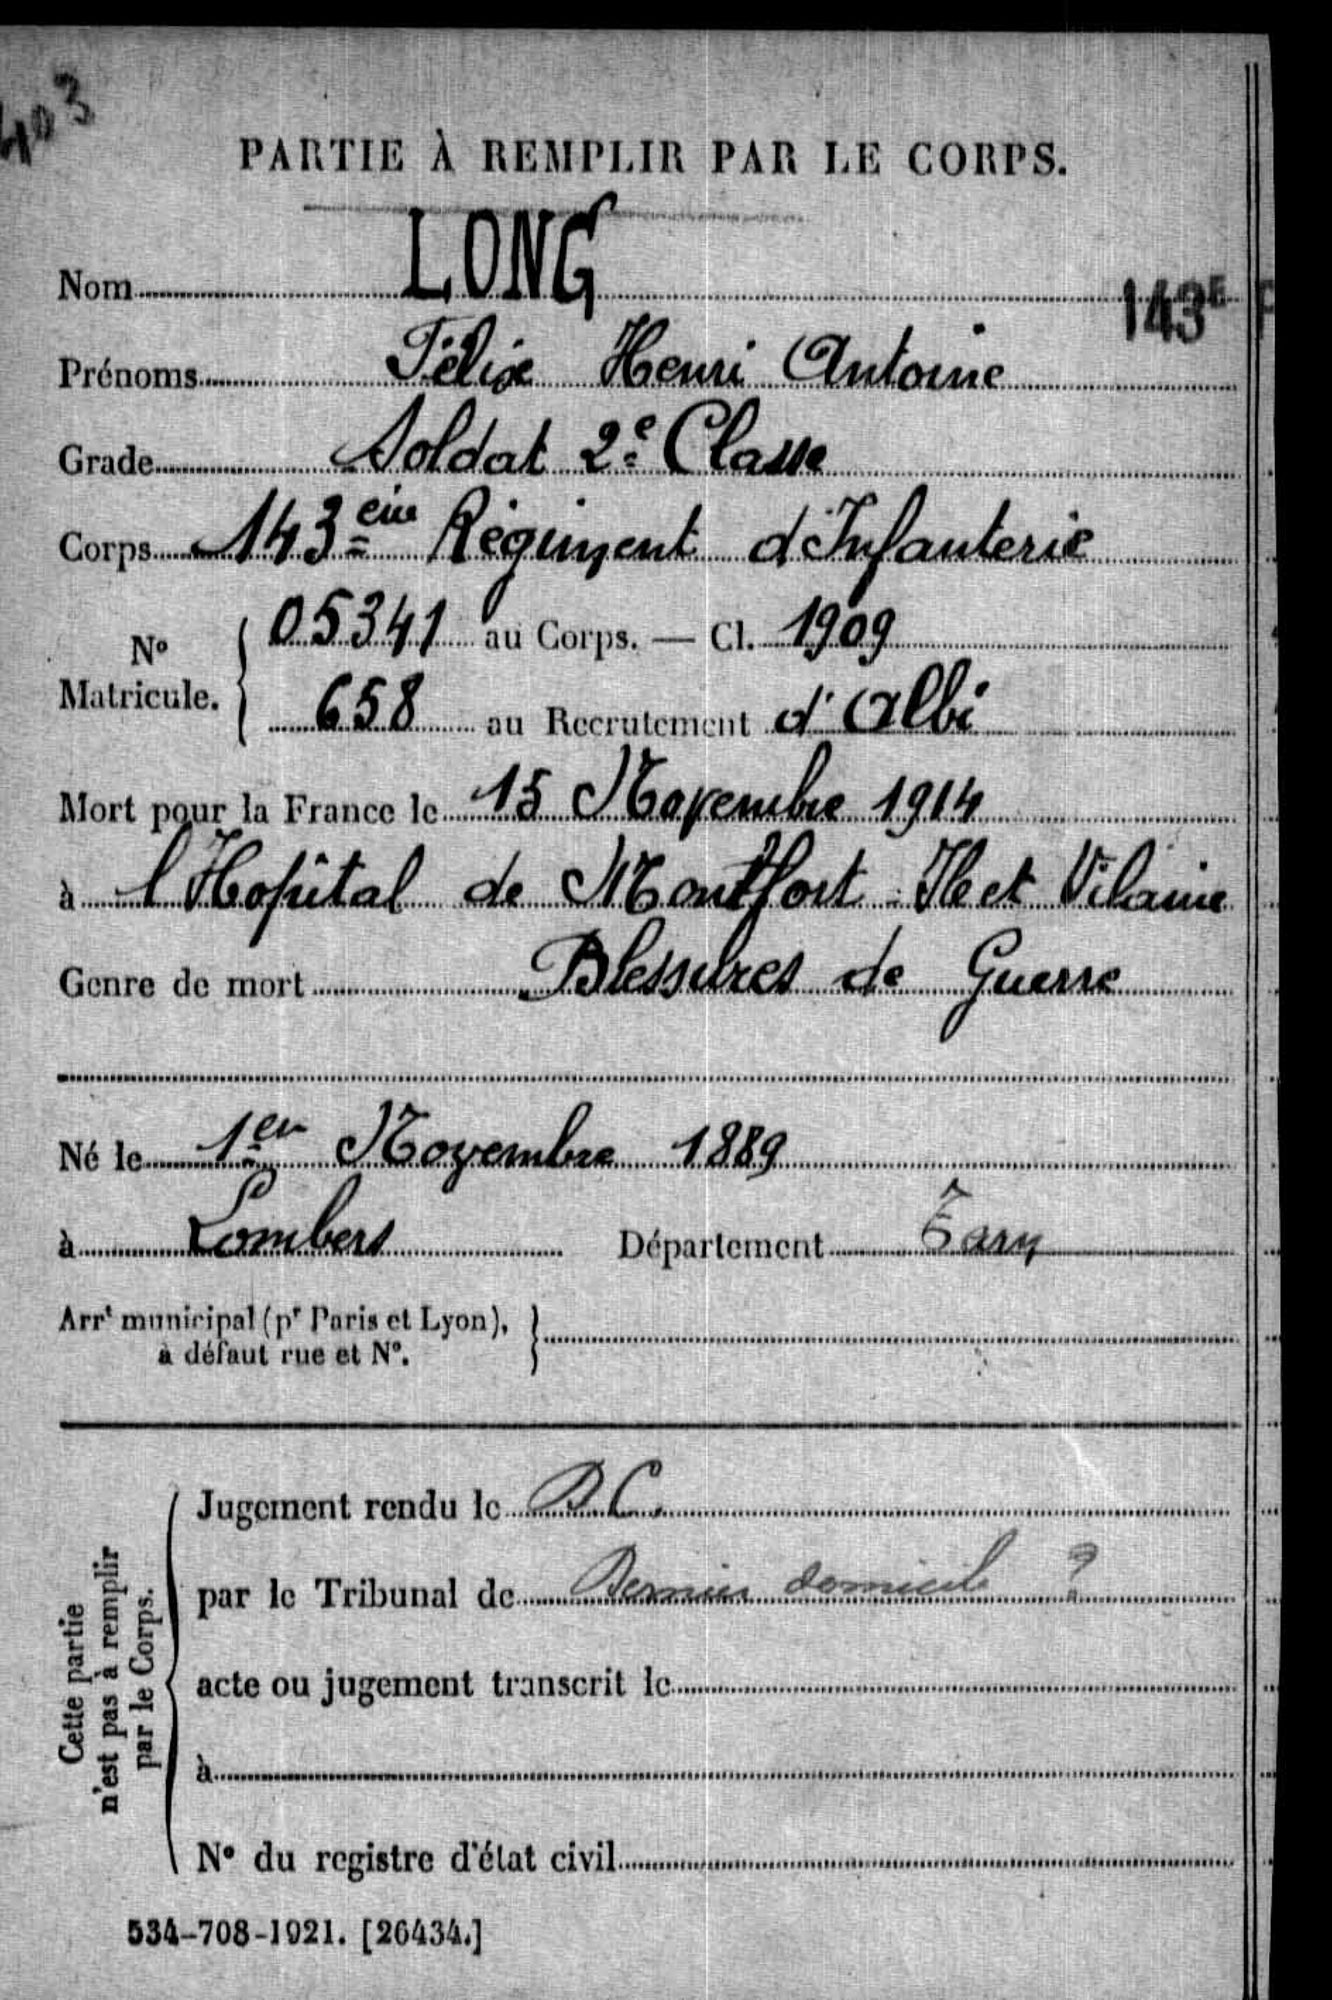 403
PARTIE À REMPLIR PAR LE CORPS.
Nom LONG
143E
Prénoms Félix Henri Antoine
Grade Soldat 2e Classe
Corps 143eme Régiment d'Infanterie
No Matricule. 05341 au Corps. — Cl. 1909
658 au Recrutement d'Albi
Mort pour la France le 15 Novembre 1914
à l'Hopital de Montfort - Ile et Vilaine
Genre de mort Blessures de Guerre
Né le 1er Novembre 1889
à Lombers Département Tarn
Arrt municipal (pr Paris et Lyon),
à défaut rue et No.
Cette partie
n'est pas à remplir
par le Corps.
Jugement rendu le
par le Tribunal de Dernier domicile ?
acte ou jugement transcrit le
à
No du registre d'état civil
534-708-1921. [26434.]